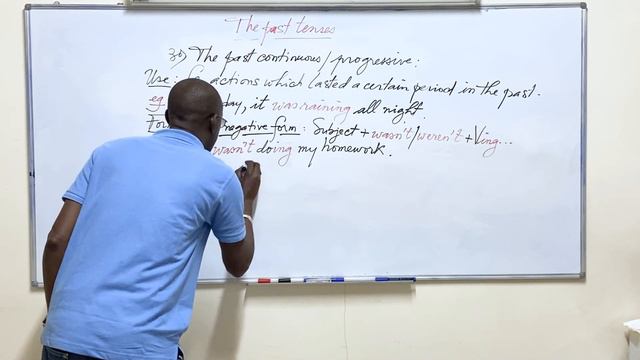 The past tenses
3b) The past continuous/progressive:
Use: actions which lasted a certain period in the past.
eg it was raining all night.
negative form: Subject + wasn't/weren't + Ving...
wasn't doing my homework.